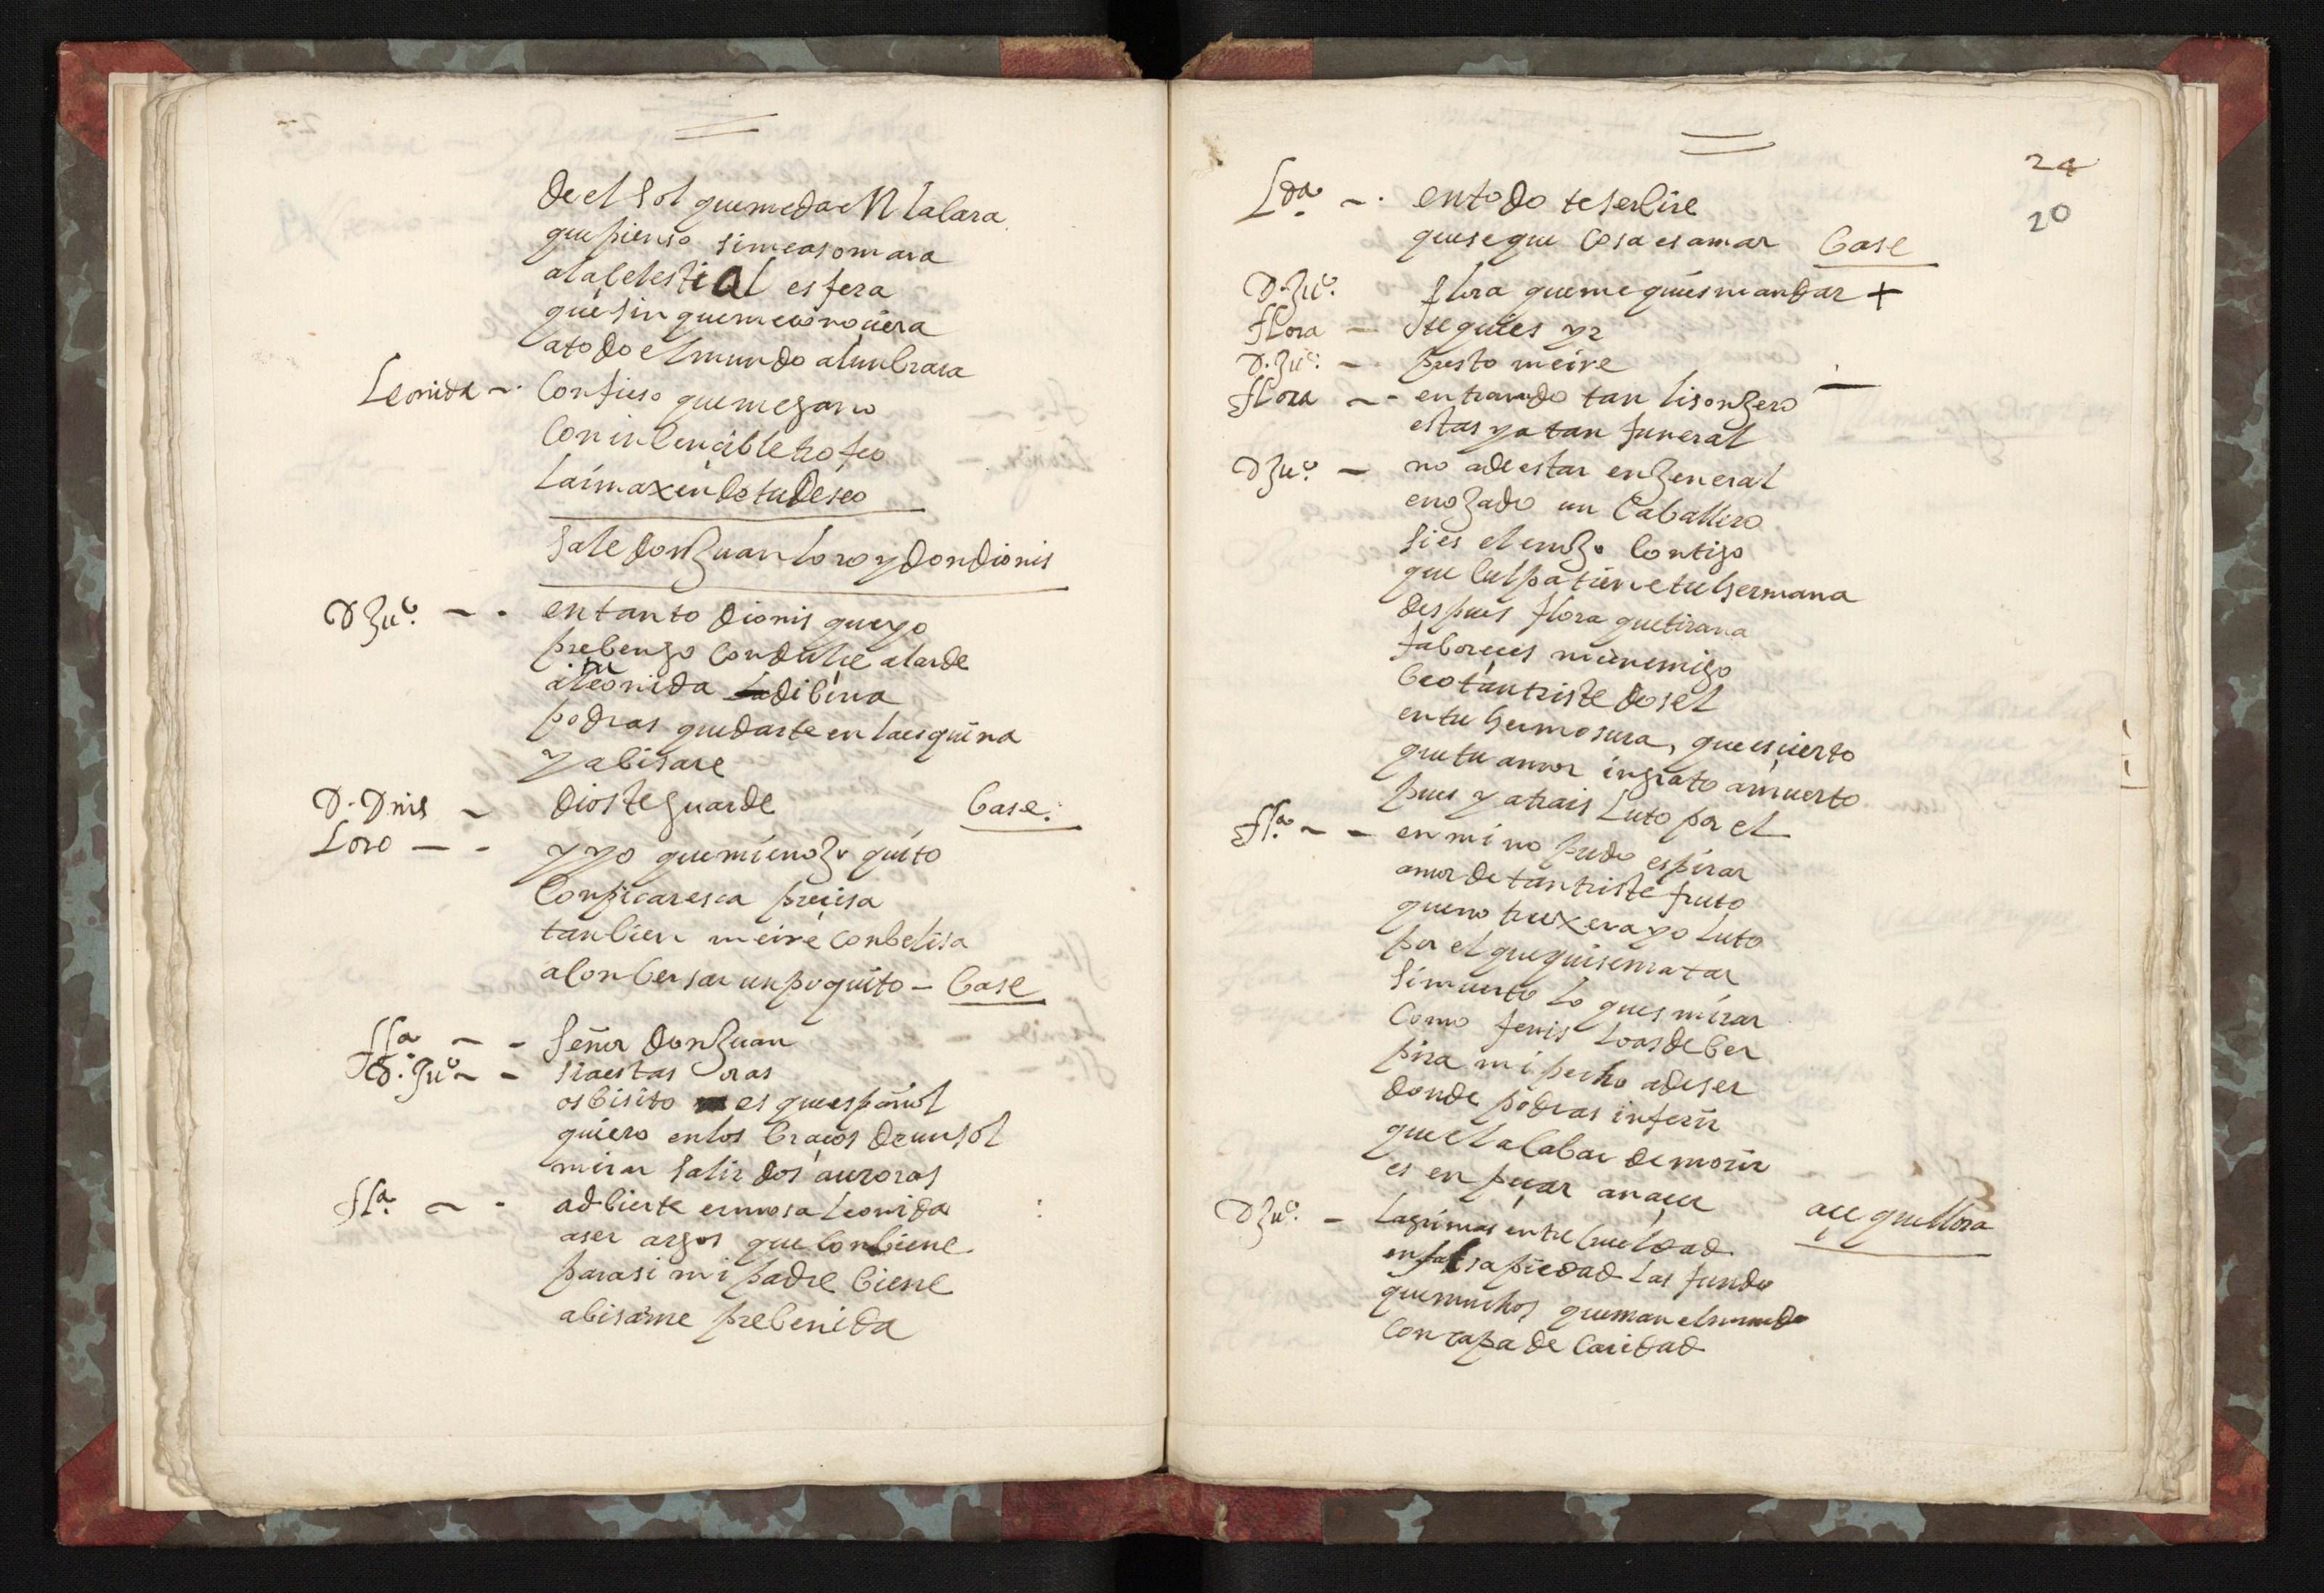 de el sol que me da en la cara
que pienso si me asomara
a la celestial esfera
que sin que me conociera
a todo el mundo alunbrara
Leonida — confieso que me gano
con inbencible trofeo
la imaxen de tu deseo
sale don Juan loro y don dionis
D Juº — en tanto dionis que yo
prebengo con dulce alarde
a leonida dibina
podras quedarte en la esquina
y abisare
D. Dnis — dios te guarde Base
Loro — y yo que mi enojo quito
con picaresca precisa
tanbien me ire con belisa
a conbersar un poquito — Base
flª — señor don Juan
D. Juº — si a estas oras
os bisito es que español
quiero en los braços de un sol
mirar salir dos auroras
flª — adbierte ermosa leonida
a ser argos que conbiene
para si mi padre biene
abisarme prebenida
24
20
Lda — en todo te serbire
que se que cosa es amar Base
D. Juº flora que me quies mandar +
flora — te quies yr
D. Juº — presto me ire
flora — entrando tan lisonjero
estas ya tan funeral
D Juº — no a de estar en jeneral
enojado un caballero
si es el enojo contigo
que culpa tiene tu hermana
despues flora que tirana
faboreces mi enemigo
beo tan triste dosel
en tu hermosura, que es cierto
que tu amor ingrato a muerto
pues ya trais luto por el
flª — en mi no pudo espirar
amor de tan triste fruto
que no truxera yo luto
por el que quise matar
si muerto lo ques mirar
como fenis lo as de ber
pira mi pecho a de ser
donde podras inferir
que el acabar de morir
es enpeçar a naçer
D Juº — lagrimas entre crueldad açe que llora
en falsa piedad las fundo
que muchos queman el mundo
con capa de caridad